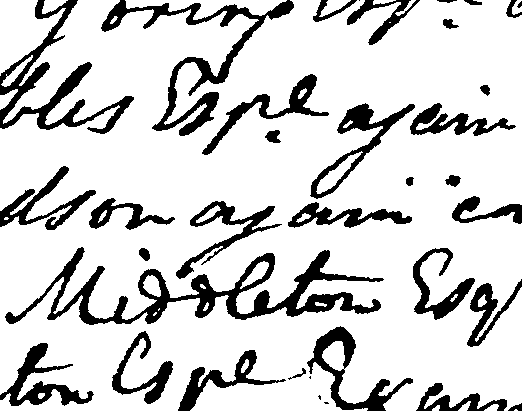 Esqr.
bles Esqre. again
dson again
Middleton Esq
ton Esqre Exam